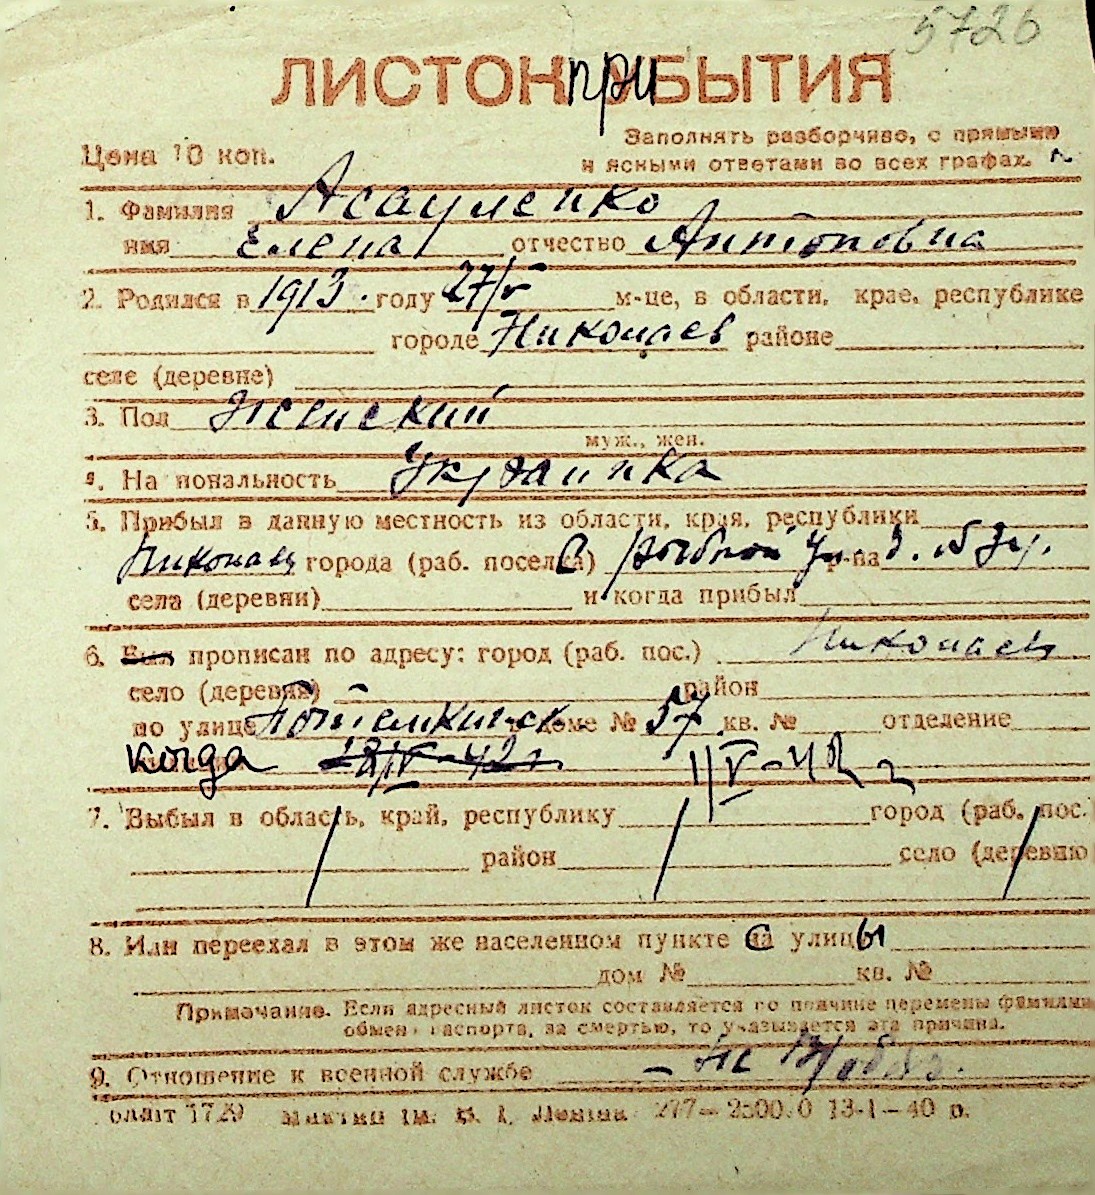 5726
ЛИСТОК при БЫТИЯ
Заполнять разборчиво, с прямыми
Цена 10 коп. и ясными ответами во всех графах.
1. Фамилия Асауленко
имя Елена отчество Антоновна
2. Родился в 1913. году 27/V м-це, в области, крае, республике
городе Николаев районе
селе (деревне)
3. Пол Женский
муж., жен.
4. На иональность Украинка
5. Прибыл в данную местность из области, края, республики
Николаев города (раб. поселка) С Рыбной ул р-на д.
села (деревни) и когда прибыл
6. Был прописан по адресу: город (раб. пос.) Николаев
село (деревня) район
по улице Потемкинск. доме № 57 кв. № отделение
когда 28/IV-42 г. 1/V-42 г
7. Выбыл в область, край, республику город (раб. пос.
район село (деревню
8. Или переехал в этом же населенном пункте С на улицы
дом № кв. №
Примечание. Если адресный листок составляется по причине перемены фамилии
обмен паспорта, за смертью, то указывается эта причина.
9. Отношение к военной службе – не
1729 им. В. И. Ленина 277–2500.0 13-I–40 р.